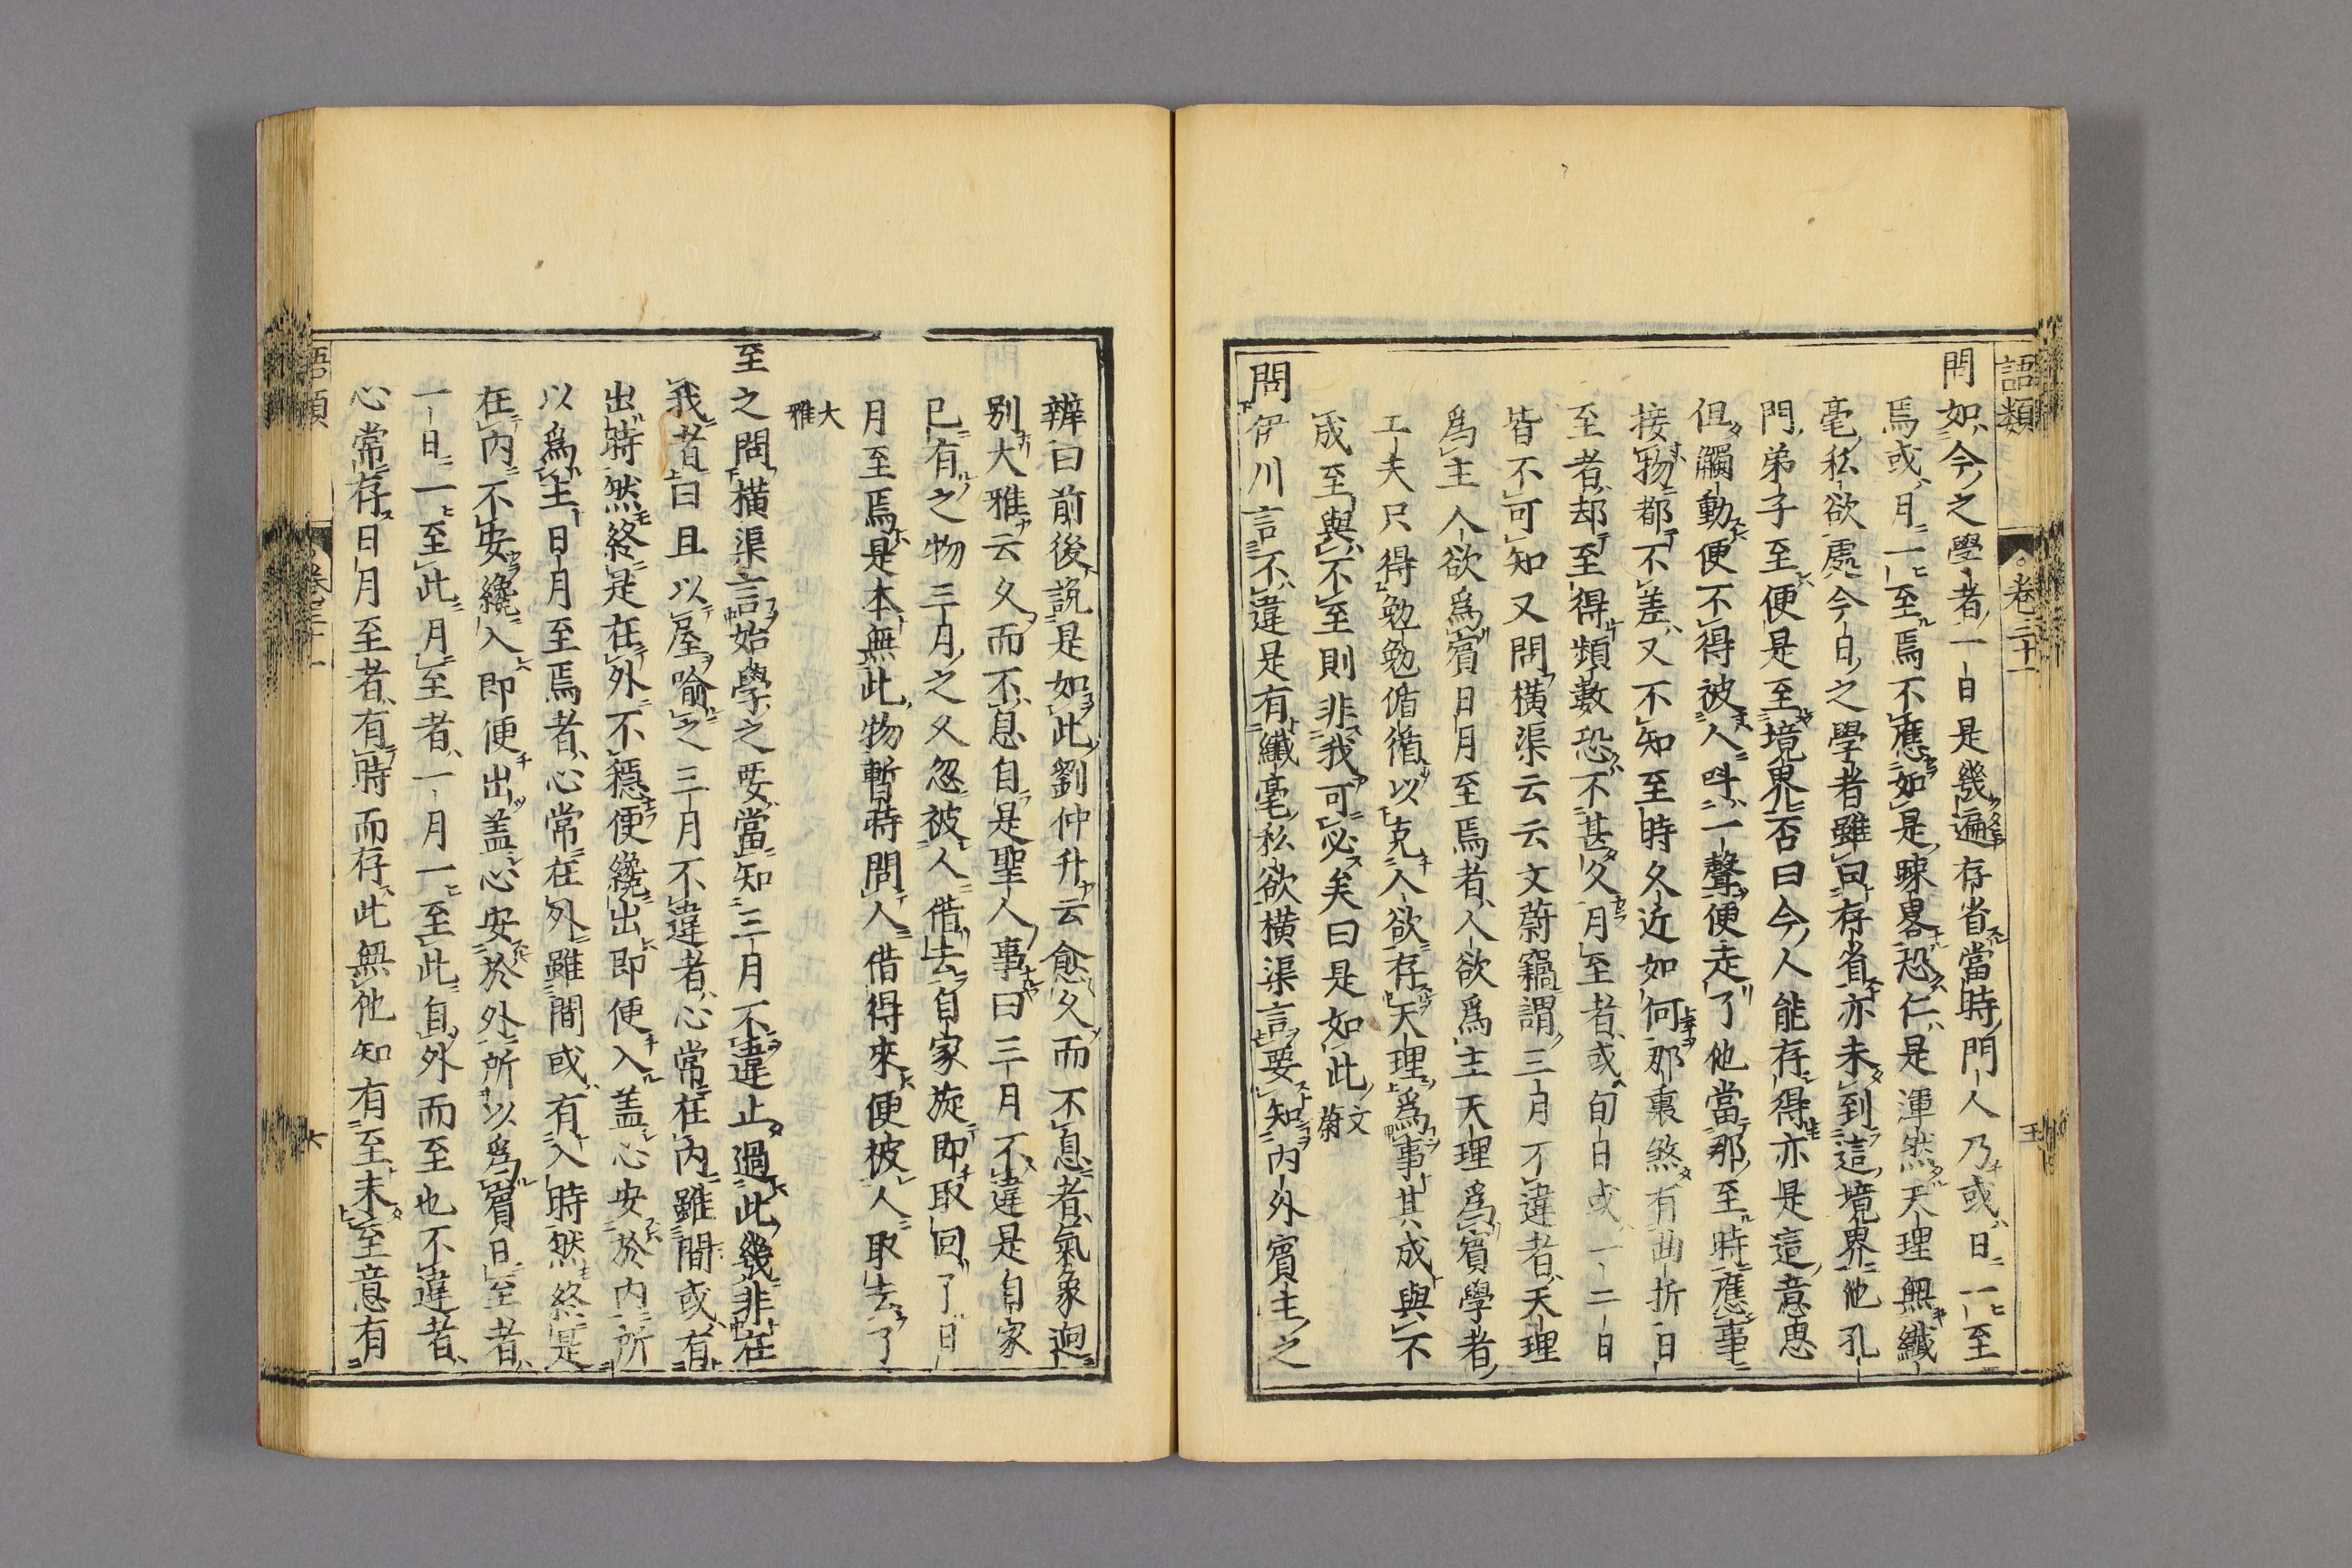 語類
卷三十一
五
問如今之學者一日是幾遍存省當時門人乃或日一至
焉或月一至焉不應如是疎畧恐仁是渾然天理無纖
毫私欲處今日之學者雖曰存省亦未到這境界他孔
門弟子至便是至境界否曰今人能存得亦是這意思
但觸動便不得被人呌一聲便走了他當那至時應事
接物都不差又不知至時久近如何那裏煞有曲折日
至者却至得頻數恐不甚久月至者或旬日或一二日
皆不可知又問橫渠云云文蔚竊謂三月不違者天理
爲主人欲爲賓日月至焉者人欲爲主天理爲賓學者
工夫只得勉勉循循以克人欲存天理爲事其成與不
成至與不至則非我可必矣曰是如此文蔚
問伊川言不違是有纖毫私欲橫渠言要知內外賓主之
辨曰前後說是如此劉仲升云愈久而不息者氣象迥
别大雅云久而不息自是聖人事曰三月不違是自家
已有之物三月之久忽被人借去自家旋即取回了日
月至焉是本無此物暫時問人借得來便被人取去了
大雅
至之問橫渠言始學之要當知三月不違止過此幾非在
我者曰且以屋喻之三月不違者心常在內雖間或有
出時然終是在外不穩便纔出即便入盖心安於內所
以爲主日月至焉者心常在外雖間或有入時然終是
在內不安纔入即便出盖心安於外所以爲賓日至者
一日一至此月至者一月一至此自外而至也不違者
心常存日月至者有時而存此無他知有至未至意有
語類
卷三十一
六